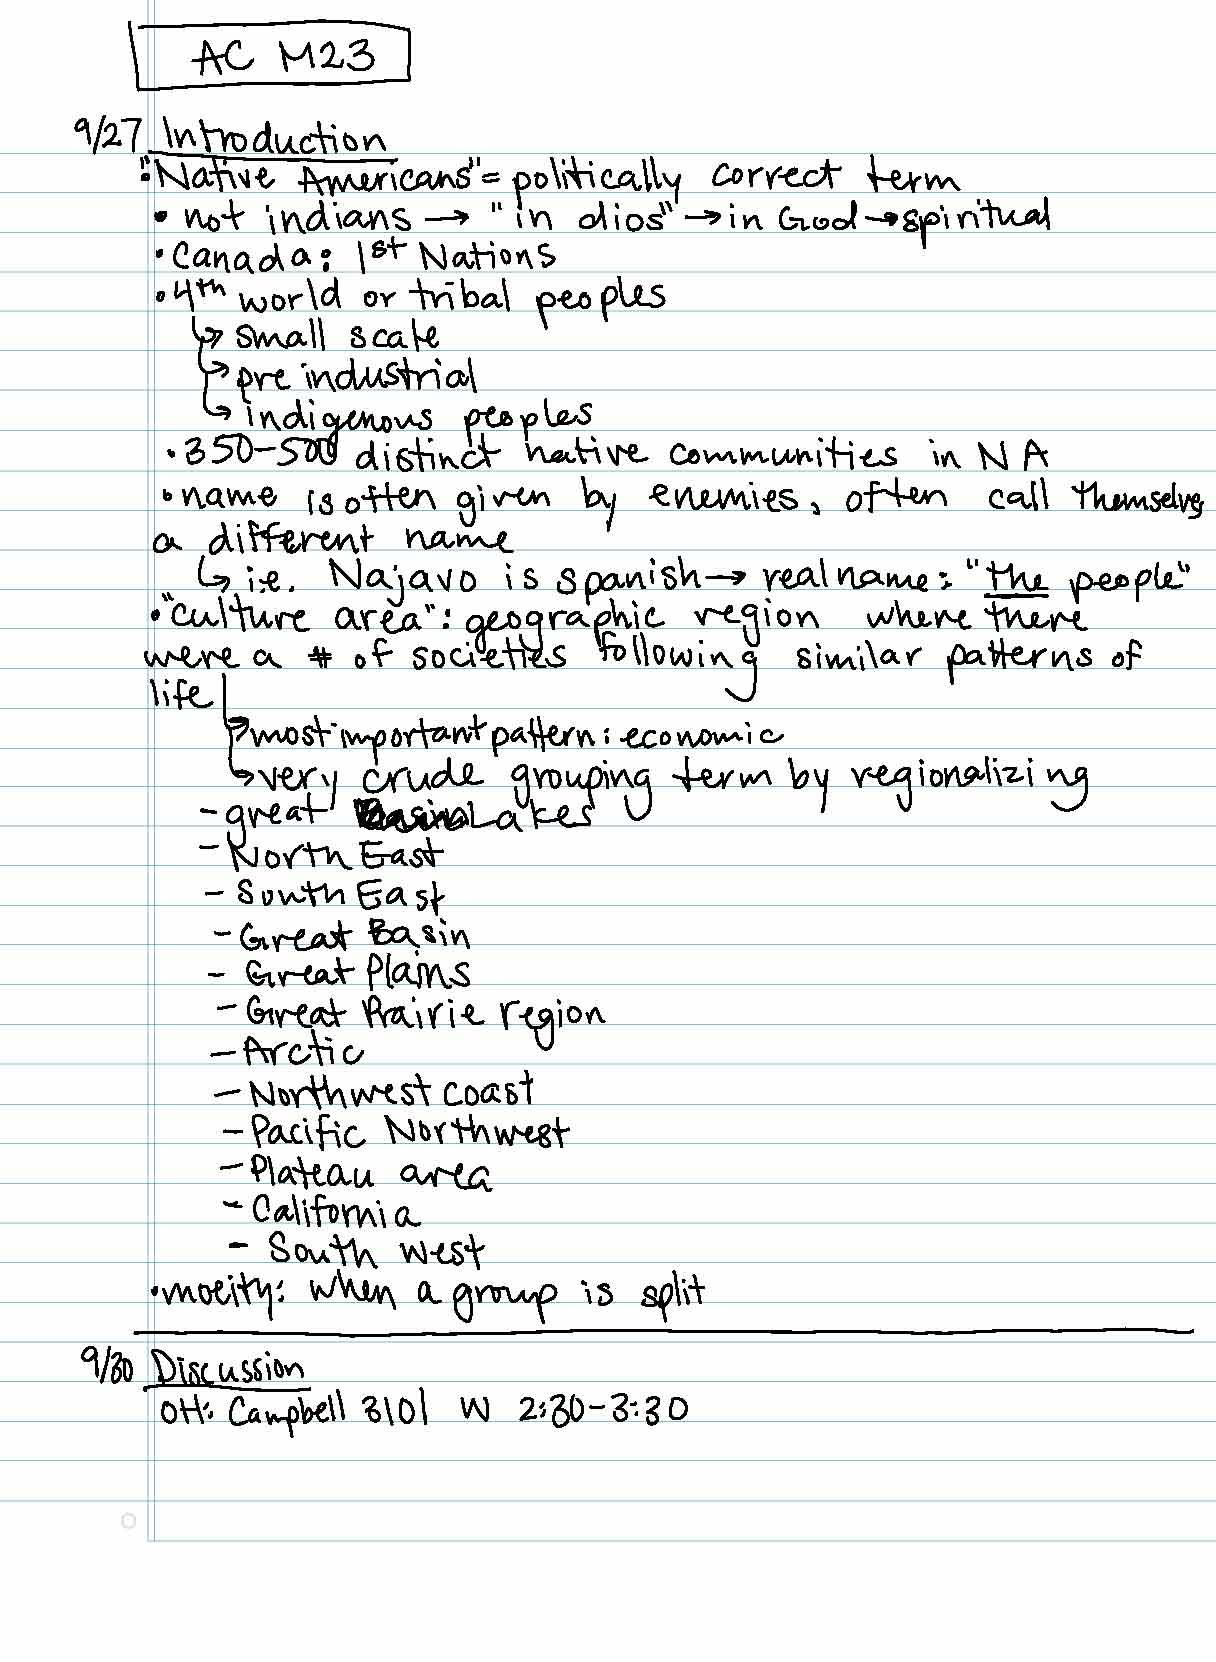 AC M23
9/27 Introduction
• "Native Americans" = politically correct term
• not indians → "in dios" → in God → spiritual
• Canada: 1st Nations
• 4th world or tribal peoples
↳ small scale
↳ pre industrial
↳ indigenous peoples
• 350-500 distinct native communities in NA
• name is often given by enemies, often call themselves
a different name
↳ i.e. Najavo is spanish → real name: "the people"
• "culture area": geographic region where there
were a # of societies following similar patterns of
life
↳ most important pattern: economic
↳ very crude grouping term by regionalizing
- great Lakes
- North East
- South East
- Great Basin
- Great Plains
- Great Prairie region
- Arctic
- Northwest coast
- Pacific Northwest
- Plateau area
- California
- South west
• moeity: when a group is split
9/30 Discussion
OH: Campbell 3101 W 2:30-3:30